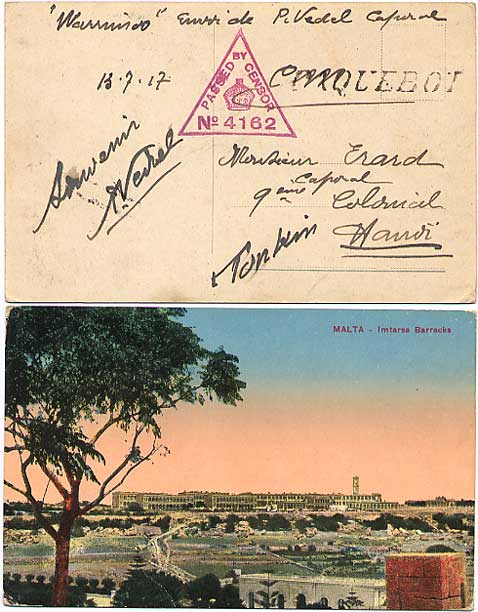 "Warrimoo" Envoi de P. Vedel Caporal
13.7.17
PASSED BY CENSOR
Nº 4162
PAQUEBOT
Souvenir
PVedel
Monsieur Erard
Caporal
9ème Colonial
Hanoï
Tonkin
MALTA - Imtarsa Barracks